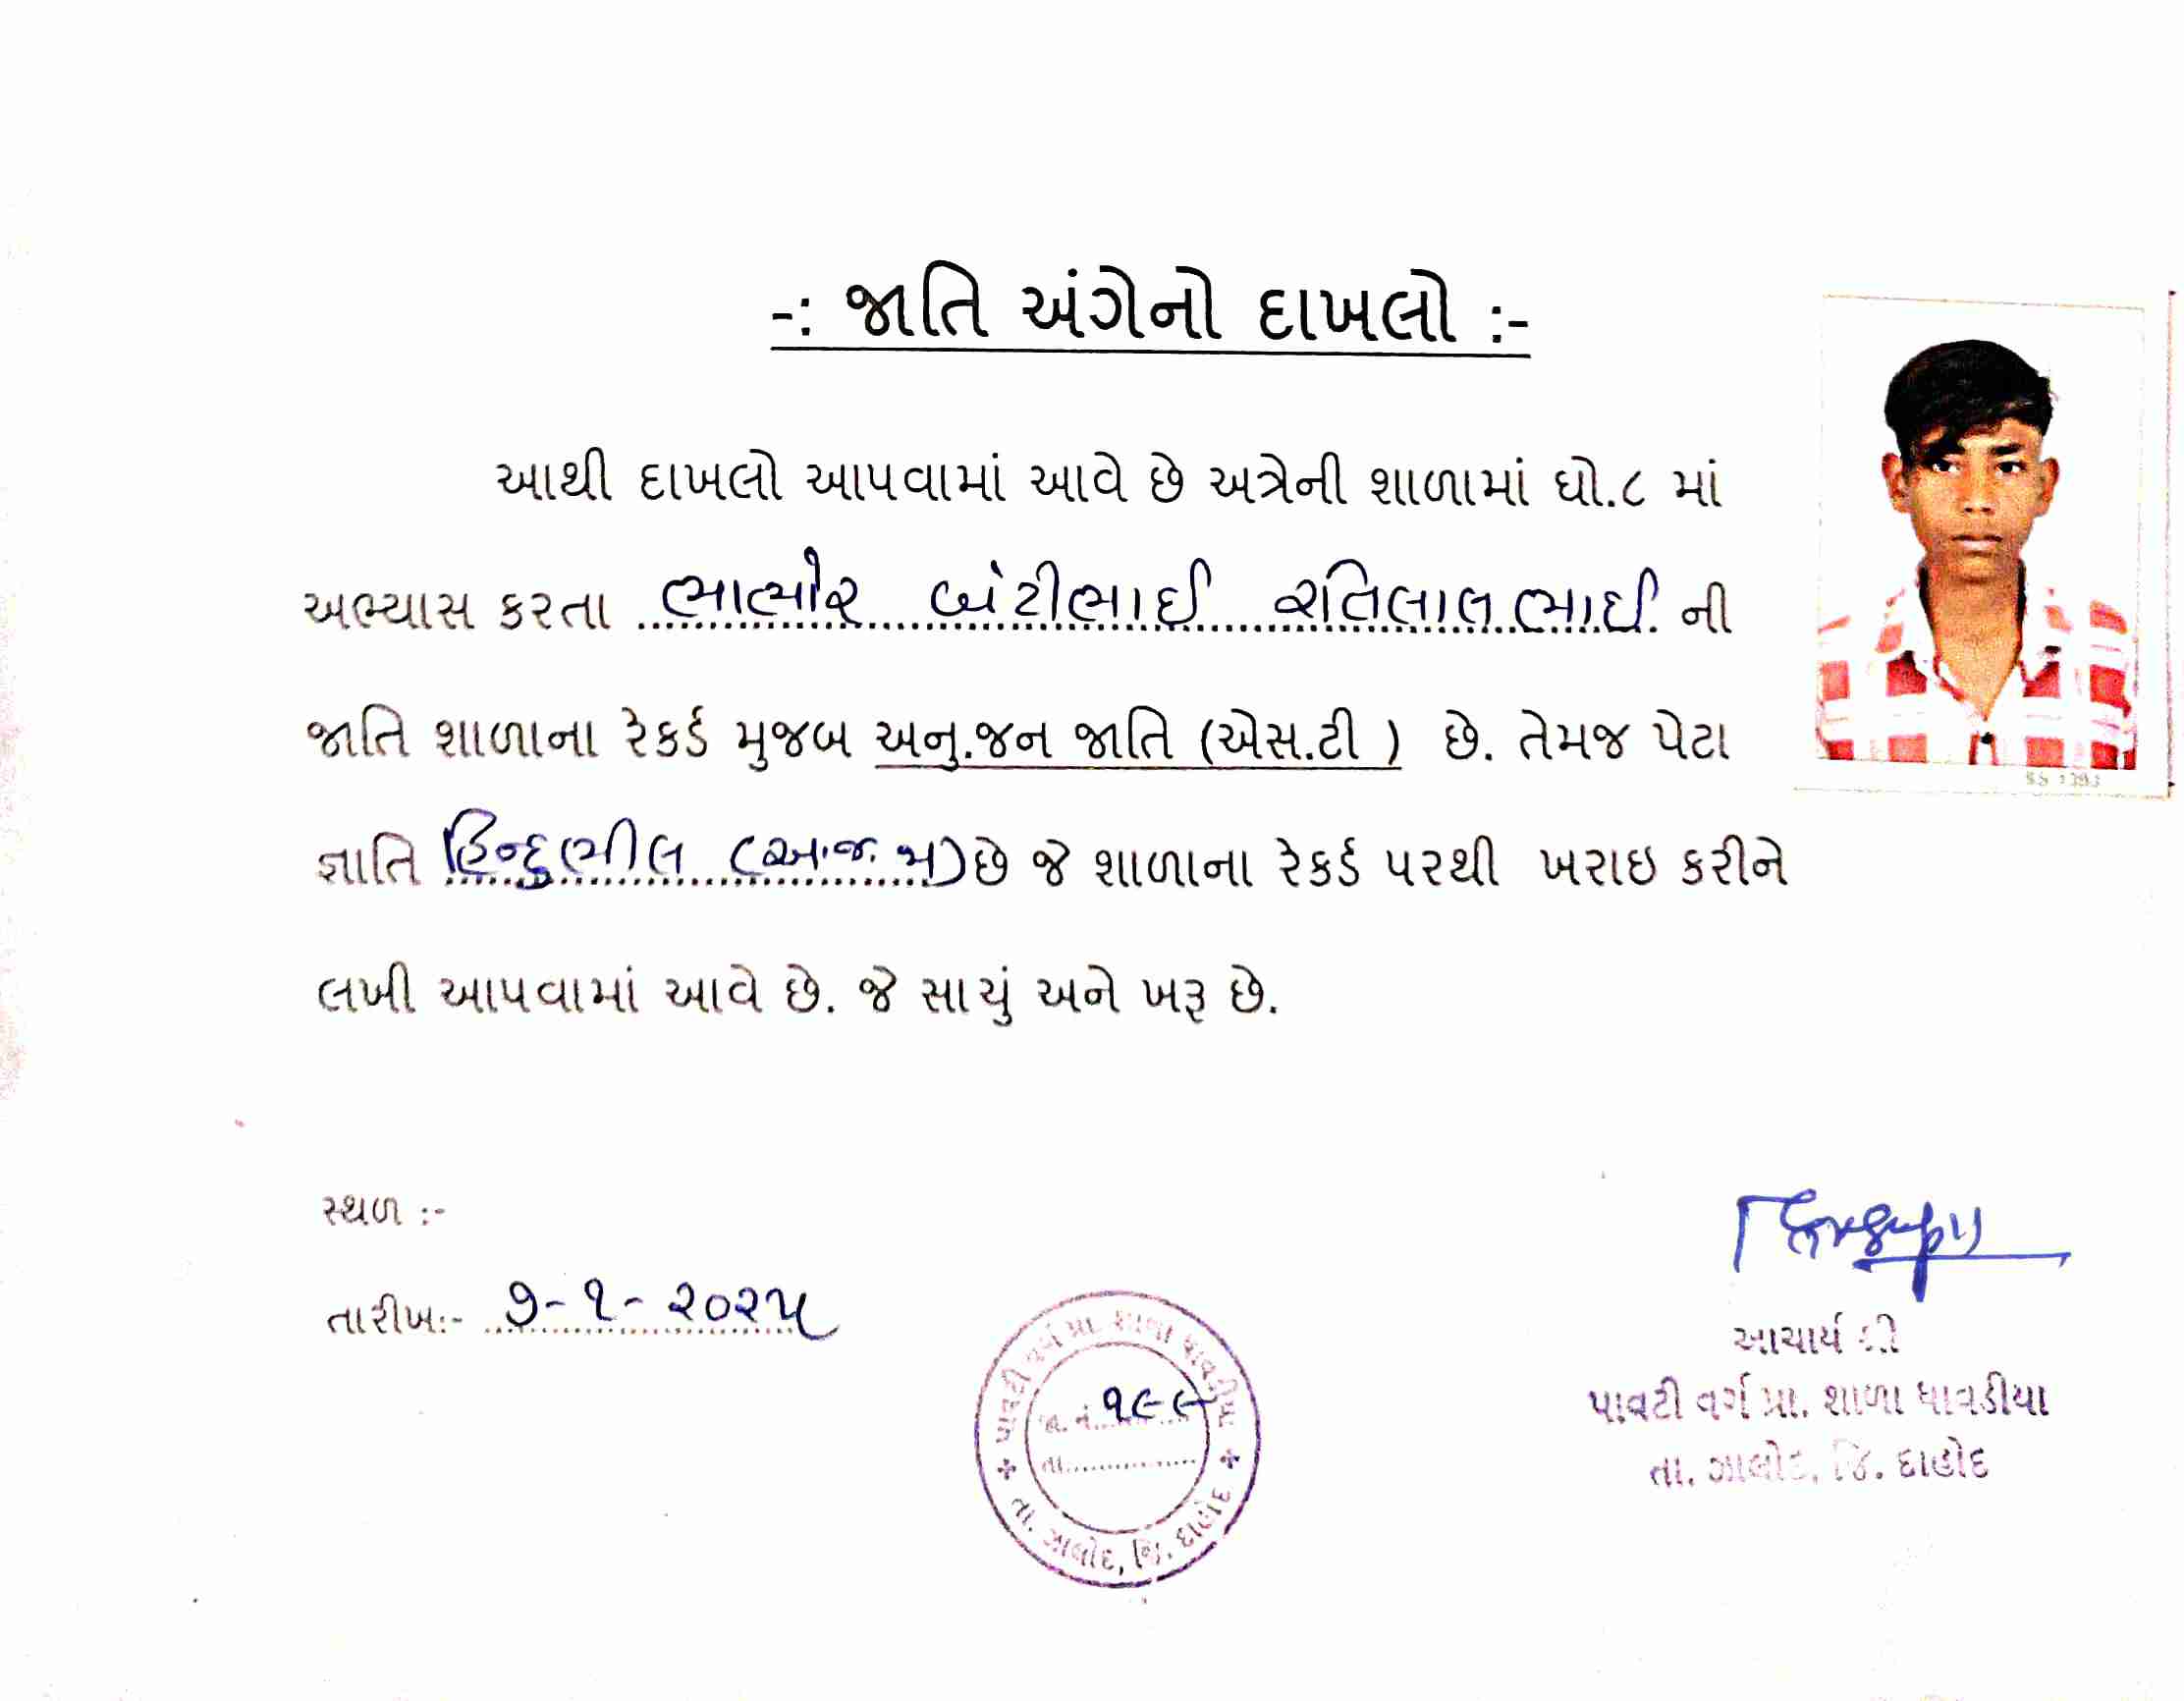 -: જાતિ અંગેનો દાખલો :-
આથી દાખલો આપવામાં આવે છે અત્રેની શાળામાં ઘો.૮ માં
અભ્યાસ કરતા ભાભોર બંટીભાઈ રતિલાલભાઈ ની
જાતિ શાળાના રેકર્ડ મુજબ અનુ.જન જાતિ (એસ.ટી ) છે. તેમજ પેટા
જ્ઞાતિ હિન્દુભીલ (અ.જ.જા) છે જે શાળાના રેકર્ડ પરથી ખરાઇ કરીને
લખી આપવામાં આવે છે. જે સાચું અને ખરૂ છે.
સ્થળ :-
તારીખ:- ૭-૧-૨૦૨૫
પાવટી વર્ગ પ્રા. શાળા ધાવડીયા
જા. નં. ૧૯૯
તા.
તા. ઝાલોદ, જિ. દાહોદ
આચાર્ય શ્રી
પાવટી વર્ગ પ્રા. શાળા ધાવડીયા
તા. ઝાલોદ, જિ. દાહોદ